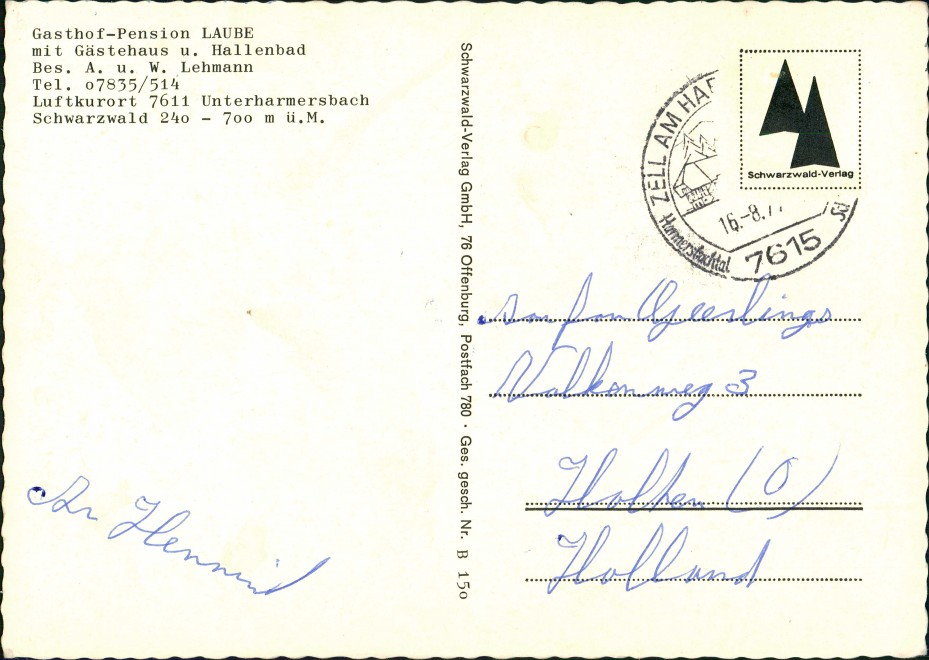 Gasthof-Pension LAUBE
mit Gästehaus u. Hallenbad
Bes. A. u. W. Lehmann
Tel. o7835/514
Luftkurort 7611 Unterharmersbach
Schwarzwald 24o - 7oo m ü.M.
Schwarzwald-Verlag GmbH, 76 Offenburg, Postfach 780 · Ges. gesch. Nr. B 15o
ZELL AM HAR
16.-8.7
Harmersbachtal
7615
Schwarzwald-Verlag
fam Geerlings
Valkenweg 3
Holten (O)
Holland